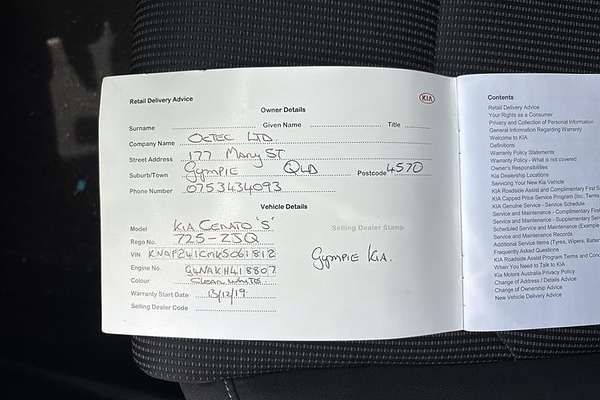 Retail Delivery Advice
KIA
Owner Details
Surname Given Name Title
Company Name OCTEC LTD
Street Address 177 MARY ST
Suburb/Town GYMPIE QLD Postcode 4570
Phone Number 0753434093
Vehicle Details
Model KIA CERATO 'S'
Selling Dealer Stamp
Rego No. 725-ZJQ
VIN KNAF241CMK5061812
Engine No. G4NAKH418807
Colour CLEAR WHITE
Warranty Start Date 13/12/19
Selling Dealer Code
GYMPIE KIA.
Contents
Retail Delivery Advice
Your Rights as a Consumer
Privacy and Collection of Personal Information
General Information Regarding Warranty
Welcome to KIA
Definitions
Warranty Policy Statements
Warranty Policy - What is not covered
Owner's Responsibilities
Kia Dealership Locations
Servicing Your New Kia Vehicle
KIA Roadside Assist and Complimentary First S
KIA Capped Price Service Program (Inc. Terms
KIA Genuine Service - Service Schedule
Service and Maintenance - Complimentary First
Service and Maintenance - Supplementary Serv
Scheduled Service and Maintenance (Example
Service and Maintenance Records
Additional Service Items (Tyres, Wipers, Batter
Frequently Asked Questions
KIA Roadside Assist Program Terms and Cond
When You Need to Talk to KIA
Kia Motors Australia Privacy Policy
Change of Address / Details Advice
Change of Ownership Advice
New Vehicle Delivery Advice